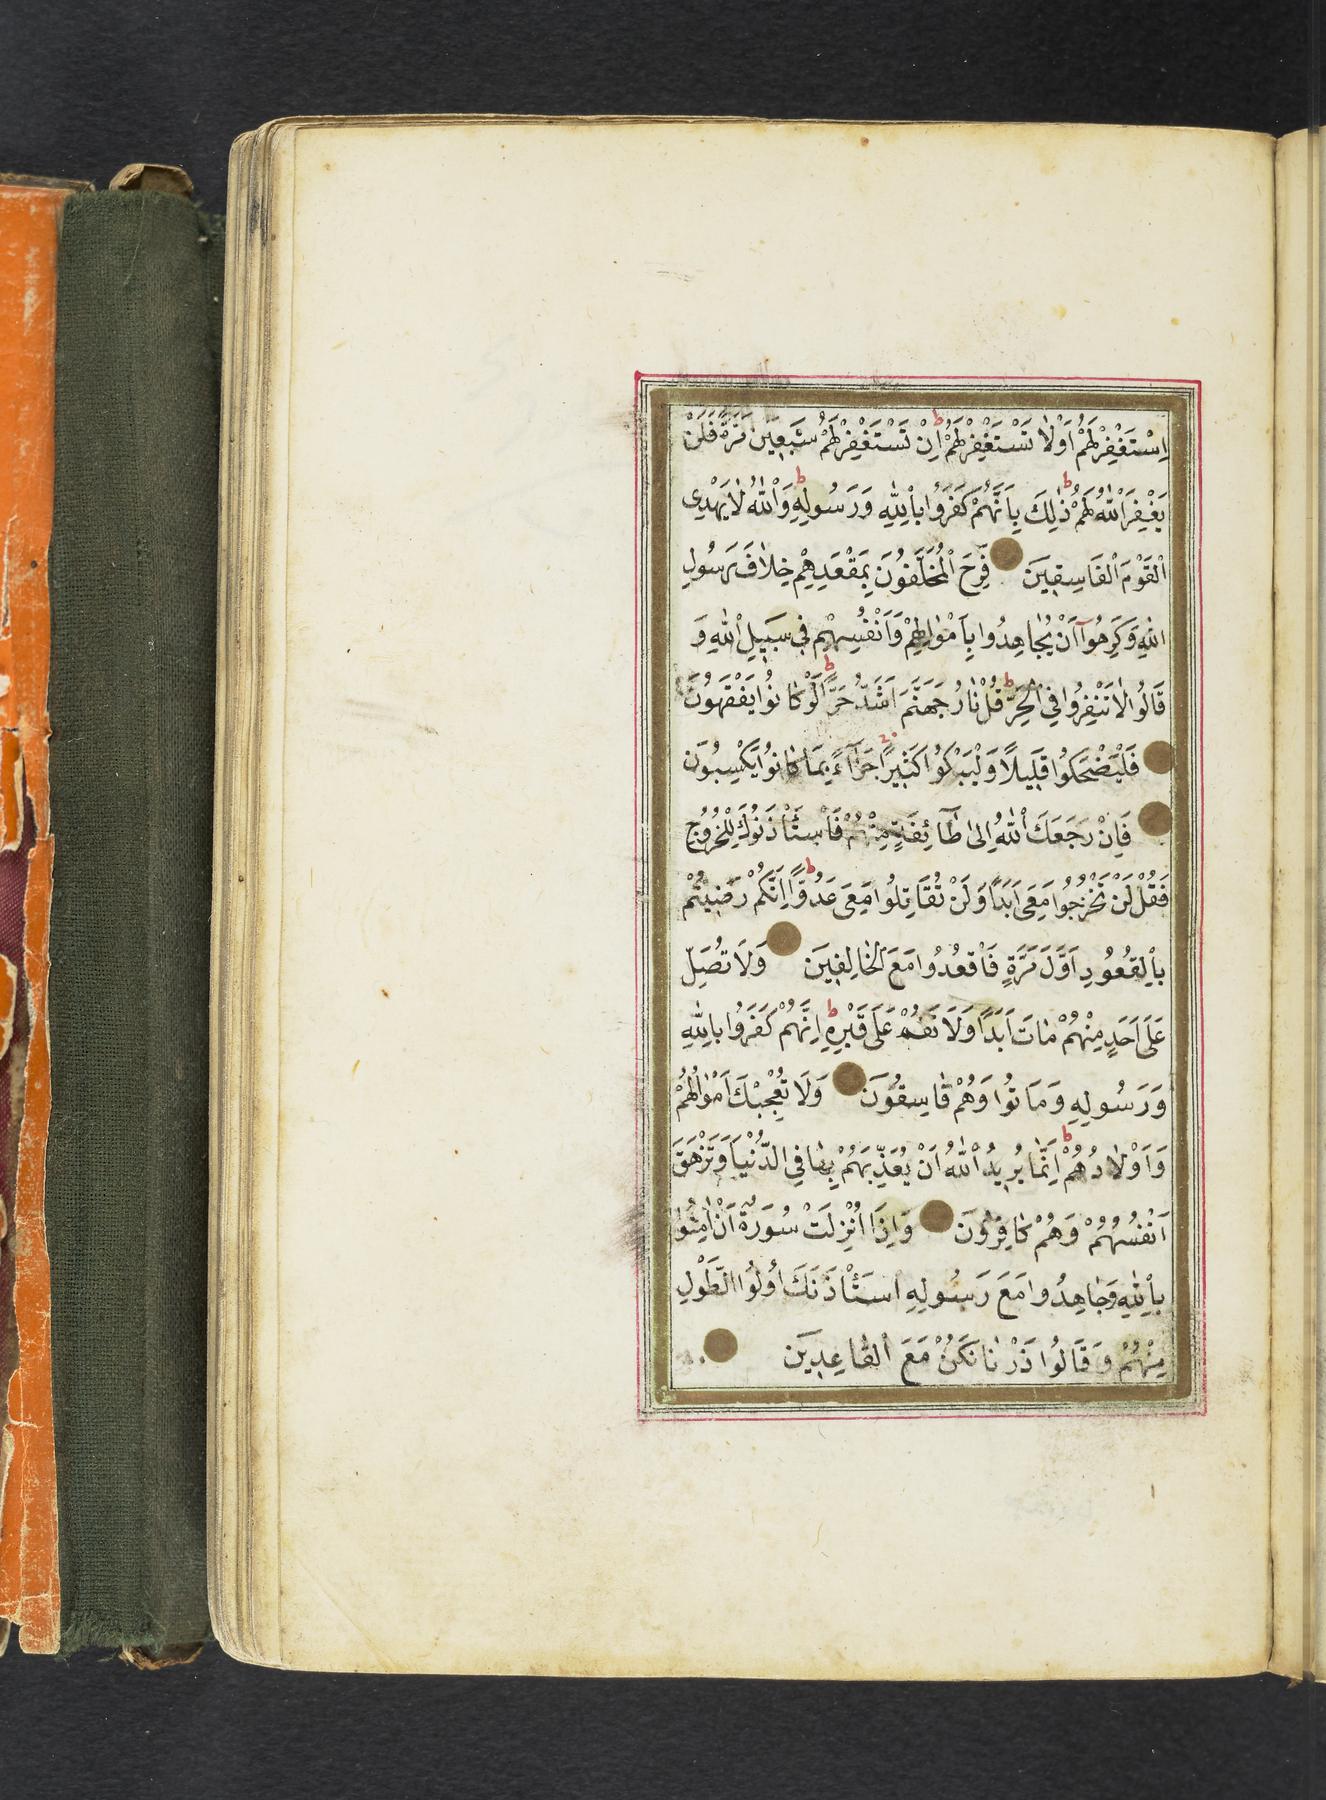 اِسْتَغْفِرْ لَهُمْ اَوْ لَا تَسْتَغْفِرْ لَهُمْ ط اِنْ تَسْتَغْفِرْ لَهُمْ سَبْعِينَ مَرَّةً فَلَنْ
يَغْفِرَ اللّٰهُ لَهُمْ ط ذٰلِكَ بِاَنَّهُمْ كَفَرُوا بِاللّٰهِ وَرَسُولِهِ ط وَاللّٰهُ لَا يَهْدِى
الْقَوْمَ الْفَاسِقِينَ فَرِحَ الْمُخَلَّفُونَ بِمَقْعَدِهِمْ خِلَافَ رَسُولِ
اللّٰهِ وَكَرِهُوٓا اَنْ يُجَاهِدُوا بِاَمْوٰالِهِمْ وَاَنْفُسِهِمْ فِي سَبِيلِ اللّٰهِ وَ
قَالُوا لَا تَنْفِرُوا فِي الْحَرِّ ط قُلْ نَارُ جَهَنَّمَ اَشَدُّ حَرًّا ط لَوْ كَانُوا يَفْقَهُونَ
فَلْيَضْحَكُوا قَلِيلًا وَلْيَبْكُوا كَثِيرًا جَزَآءً بِمَا كَانُوا يَكْسِبُونَ
فَاِنْ رَجَعَكَ اللّٰهُ اِلىٰ طَآئِفَةٍ مِنْهُمْ فَاسْتَأْذَنُوكَ لِلْخُرُوجِ
فَقُلْ لَنْ تَخْرُجُوا مَعِىَ اَبَدًا وَلَنْ تُقَاتِلُوا مَعِىَ عَدُوًّا ط اِنَّكُمْ رَضِيتُمْ
بِالْقُعُودِ اَوَّلَ مَرَّةٍ فَاقْعُدُوا مَعَ الْخَالِفِينَ وَلَا تُصَلِّ
عَلَى اَحَدٍ مِنْهُمْ مَاتَ اَبَدًا وَلَا تَقُمْ عَلَى قَبْرِهِ ط اِنَّهُمْ كَفَرُوا بِاللّٰهِ
وَرَسُولِهِ وَمَاتُوا وَهُمْ فَاسِقُونَ وَلَا تُعْجِبْكَ اَمْوٰالُهُمْ
وَاَوْلَادُهُمْ ط اِنَّمَا يُرِيدُ اللّٰهُ اَنْ يُعَذِّبَهُمْ بِهَا فِي الدُّنْيَا وَتَزْهَقَ
اَنْفُسُهُمْ وَهُمْ كَافِرُونَ وَاِذَا اُنْزِلَتْ سُورَةٌ اَنْ اٰمِنُوا
بِاللّٰهِ وَجَاهِدُوا مَعَ رَسُولِهِ اسْتَأْذَنَكَ اُولُوا الطَّوْلِ
مِنْهُمْ وَقَالُوا ذَرْنَا نَكُنْ مَعَ الْقَاعِدِينَ